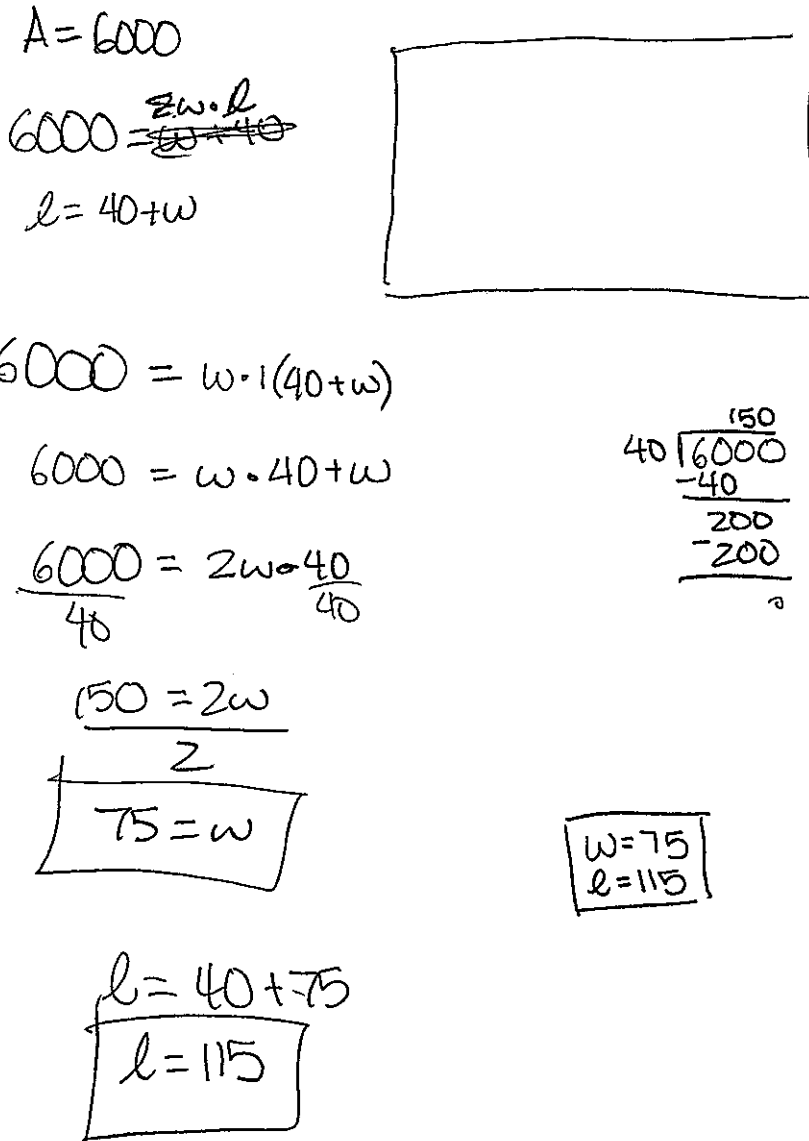 A = 6000
6000 = w + 40
2w · l
l = 40 + w
6000 = w · 1(40 + w)
6000 = w · 40 + w
6000 = 2w · 40
40 40
150 = 2w
2
75 = w
l = 40 + 75
l = 115
150
40 6000
-40
200
-200
0
w = 75
l = 115